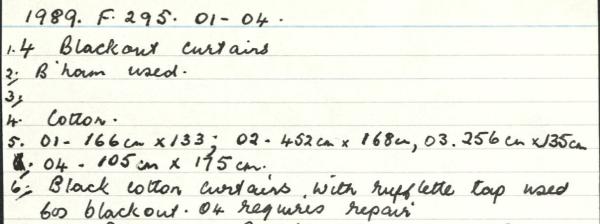 1989. F. 295. 01-04.
1. 4 Blackout curtains
2. B'ham used.
3.
4. Cotton.
5. 01 - 166cm x 133; 02 - 452cm x 168cm, 03. 256cm x 135cm
04 - 105cm x 175cm.
6. Black cotton curtains with rufflette tap used
for blackout. 04 requires repair